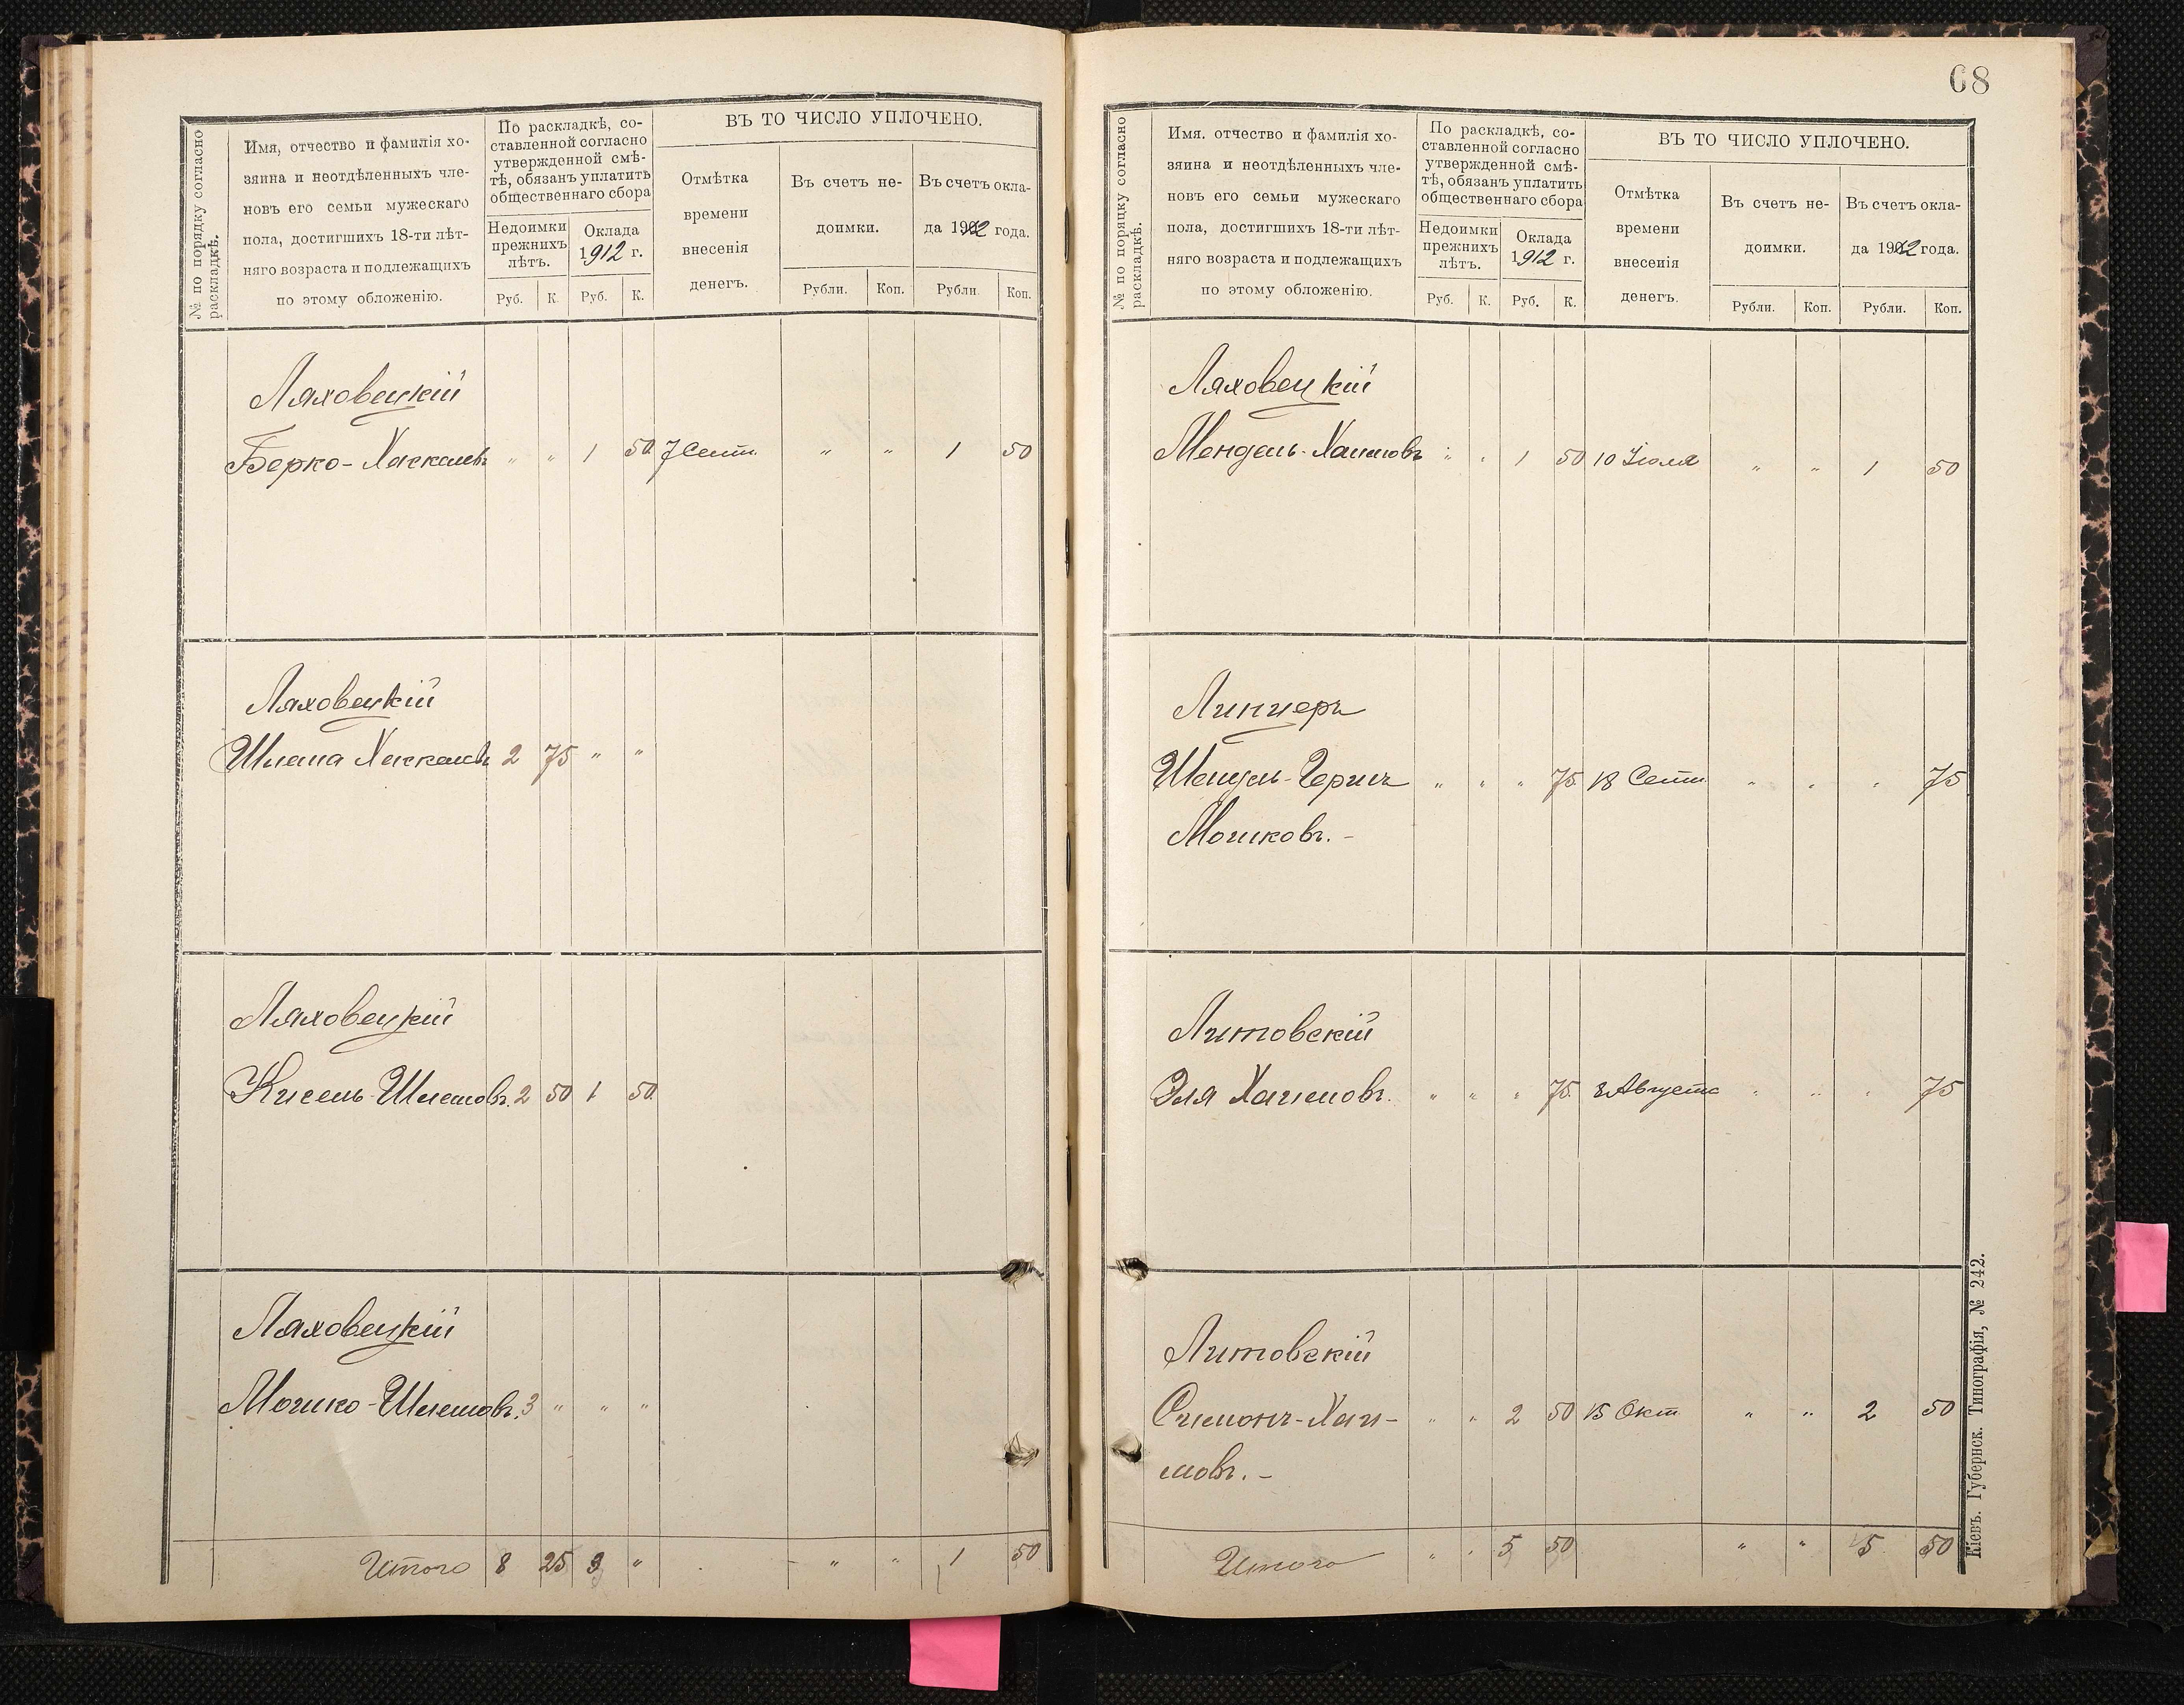 № по порядку согласно
раскладкѣ.
Имя, отчество и фамилія хо-
зяина и неотдѣленныхъ чле-
новъ его семьи мужескаго
пола, достигшихъ 18-ти лѣт-
няго возраста и подлежащихъ
по этому обложенію.
По раскладкѣ, со-
ставленной согласно
утвержденной смѣ-
тѣ, обязанъ уплатить
общественнаго сбора
Недоимки
прежнихъ
лѣтъ.
Оклада
1912 г.
Руб. К. Руб. К.
ВЪ ТО ЧИСЛО УПЛОЧЕНО.
Отмѣтка
времени
внесенія
денегъ.
Въ счетъ не-
доимки.
Рубли. Коп.
Въ счетъ окла-
да 1912 года.
Рубли. Коп.
Ляховецкій
Берко-Хаскелевъ " " 1 50 7 Сент. " " 1 50
Ляховецкій
Шлема Хаскелевъ 2 75 " "
Ляховецкій
Кисель-Шлемовъ. 2 50 1 50
Ляховецкій
Мошко-Шлемовъ. 3 " " "
Итого 8 25 3 " " " 1 50
68
№ по порядку согласно
раскладкѣ.
Имя, отчество и фамилія хо-
зяина и неотдѣленныхъ чле-
новъ его семьи мужескаго
пола, достигшихъ 18-ти лѣт-
няго возраста и подлежащихъ
по этому обложенію.
По раскладкѣ, со-
ставленной согласно
утвержденной смѣ-
тѣ, обязанъ уплатить
общественнаго сбора
Недоимки
прежнихъ
лѣтъ.
Оклада
1912 г.
Руб. К. Руб. К.
ВЪ ТО ЧИСЛО УПЛОЧЕНО.
Отмѣтка
времени
внесенія
денегъ.
Въ счетъ не-
доимки.
Рубли. Коп.
Въ счетъ окла-
да 1912 года.
Рубли. Коп.
Ляховецкій
Мендель-Хаимовъ " " 1 50 10 Іюля " " 1 50
Линцеръ
Шендель-Гершъ " " " 75 18 Сент. " " " 75
Мошковъ. -
Литовскій
Эля Хаимовъ. " " " 75 8 Августа " " " 75
Литовскій
Симонъ-Хаи- " " 2 50 15 Окт " " 2 50
мовъ. -
Итого " " 5 50 " " 5 50
Кіевъ. Губернск. Типографія, № 242.